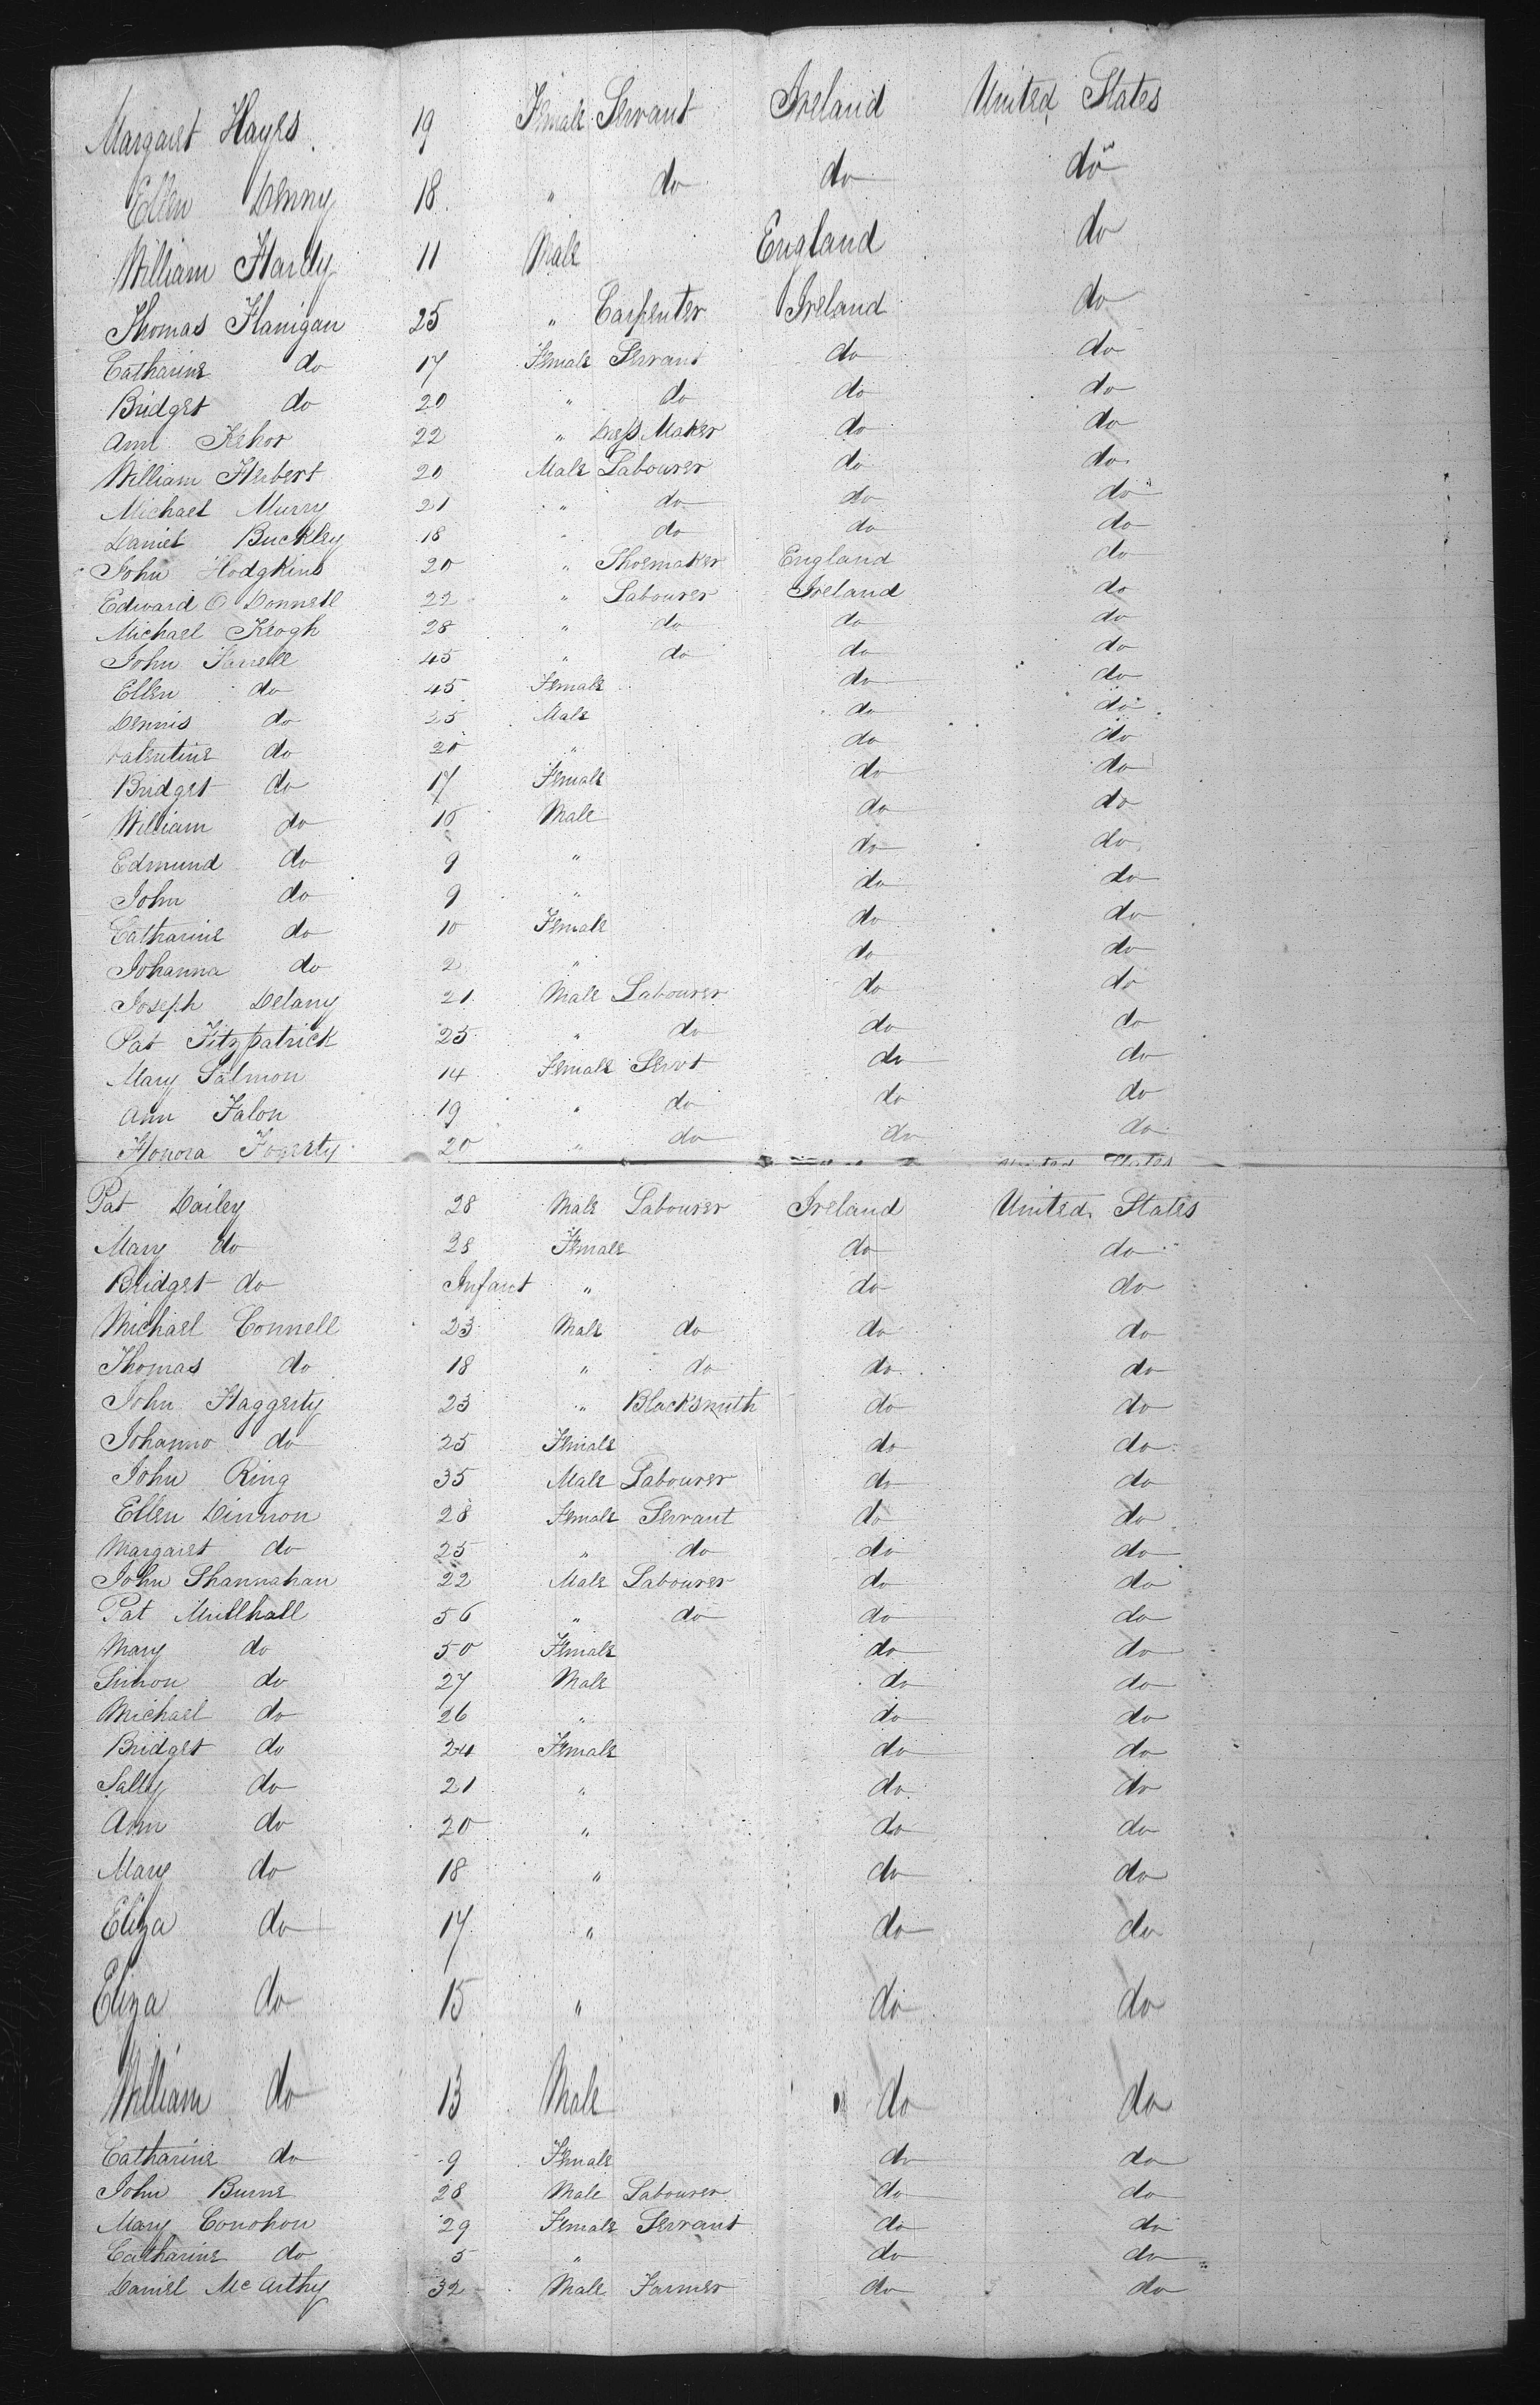 Margaret Hayes 19 Female Servant Ireland United States
Ellen Denny 18 " do do do
William Hardy 11 Male England do
Thomas Flanigan 25 " Carpenter Ireland do
Catharine do 17 Female Servant do do
Bridget do 20 " do do do
Ann Kehor 22 " Dress Maker do do
William Herbert 20 Male Labourer do do
Michael Murry 21 " do do do
Daniel Buckley 18 " do do do
John Hodgkins 20 " Shoemaker England do
Edward O Donnell 22 " Labourer Ireland do
Michael Keogh 28 " do do do
John Farrell 45 " do do do
Ellen do 45 Female do do
Dennis do 25 Male do do
Valentine do 20 " do do
Bridget do 17 Female do do
William do 15 Male do do
Edmund do 9 " do do
John do 9 " do do
Catharine do 10 Female do do
Johanna do 2 " do do
Joseph Delany 21 Male Labourer do do
Pat Fitzpatrick 25 " do do do
Mary Salmon 14 Female Servt do do
Ann Falon 19 " do do do
Honora Fogerty 20 " do do do
United States
Pat Dailey 28 Male Labourer Ireland United States
Mary do 28 Female do do
Bridget do Infant " do do
Michael Connell 23 Male do do do
Thomas do 18 " do do do
John Haggerty 23 " Blacksmith do do
Johanna do 25 Female do do
John Ring 35 Male Labourer do do
Ellen Dinnon 28 Female Servant do do
Margaret do 25 " do do do
John Shannahan 22 Male Labourer do do
Pat Mullhall 56 " do do do
Mary do 50 Female do do
Simon do 27 Male do do
Michael do 26 " do do
Bridget do 24 Female do do
Sally do 21 " do do
Ann do 20 " do do
Mary do 18 " do do
Eliza do 17 " do do
Eliza do 15 " do do
William do 13 Male do do
Catharine do 9 Female do do
John Burns 28 Male Labourer do do
Mary Conohon 29 Female Servant do do
Catharine do 5 " do do
Daniel Mc Arthy 32 Male Farmer do do